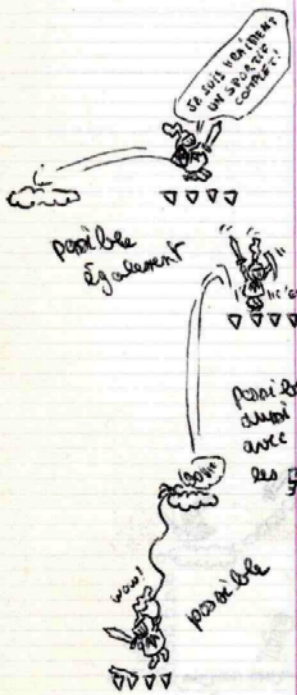 JE SUIS VRAIMENT
UN SPORTIF
COMPLET!
possible
également
possible
aussi
avec
les
WOW!
possible